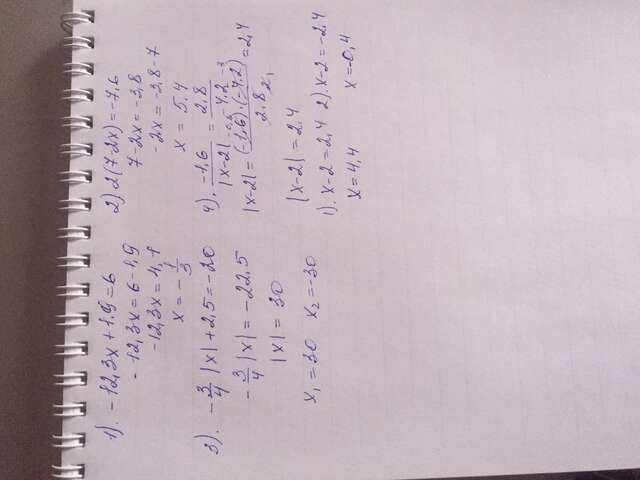 1). -12,3x+1,9=6
-12,3x=6-1,9
-12,3x=4,1
x=-1/3
3). -3/4|x|+2,5=-20
-3/4|x|=-22,5
|x|=30
x₁=30 x₂=-30
2) 2(7-2x)=-7,6
7-2x=-3,8
-2x=-3,8-7
x=5,4
4). -1,6/|x-2|=2,8/-4,2
|x-2|=(-1,6)·(-4,2)/2,8=2,4
|x-2|=2,4
1). x-2=2,4 2) x-2=-2,4
x=4,4 x=-0,4